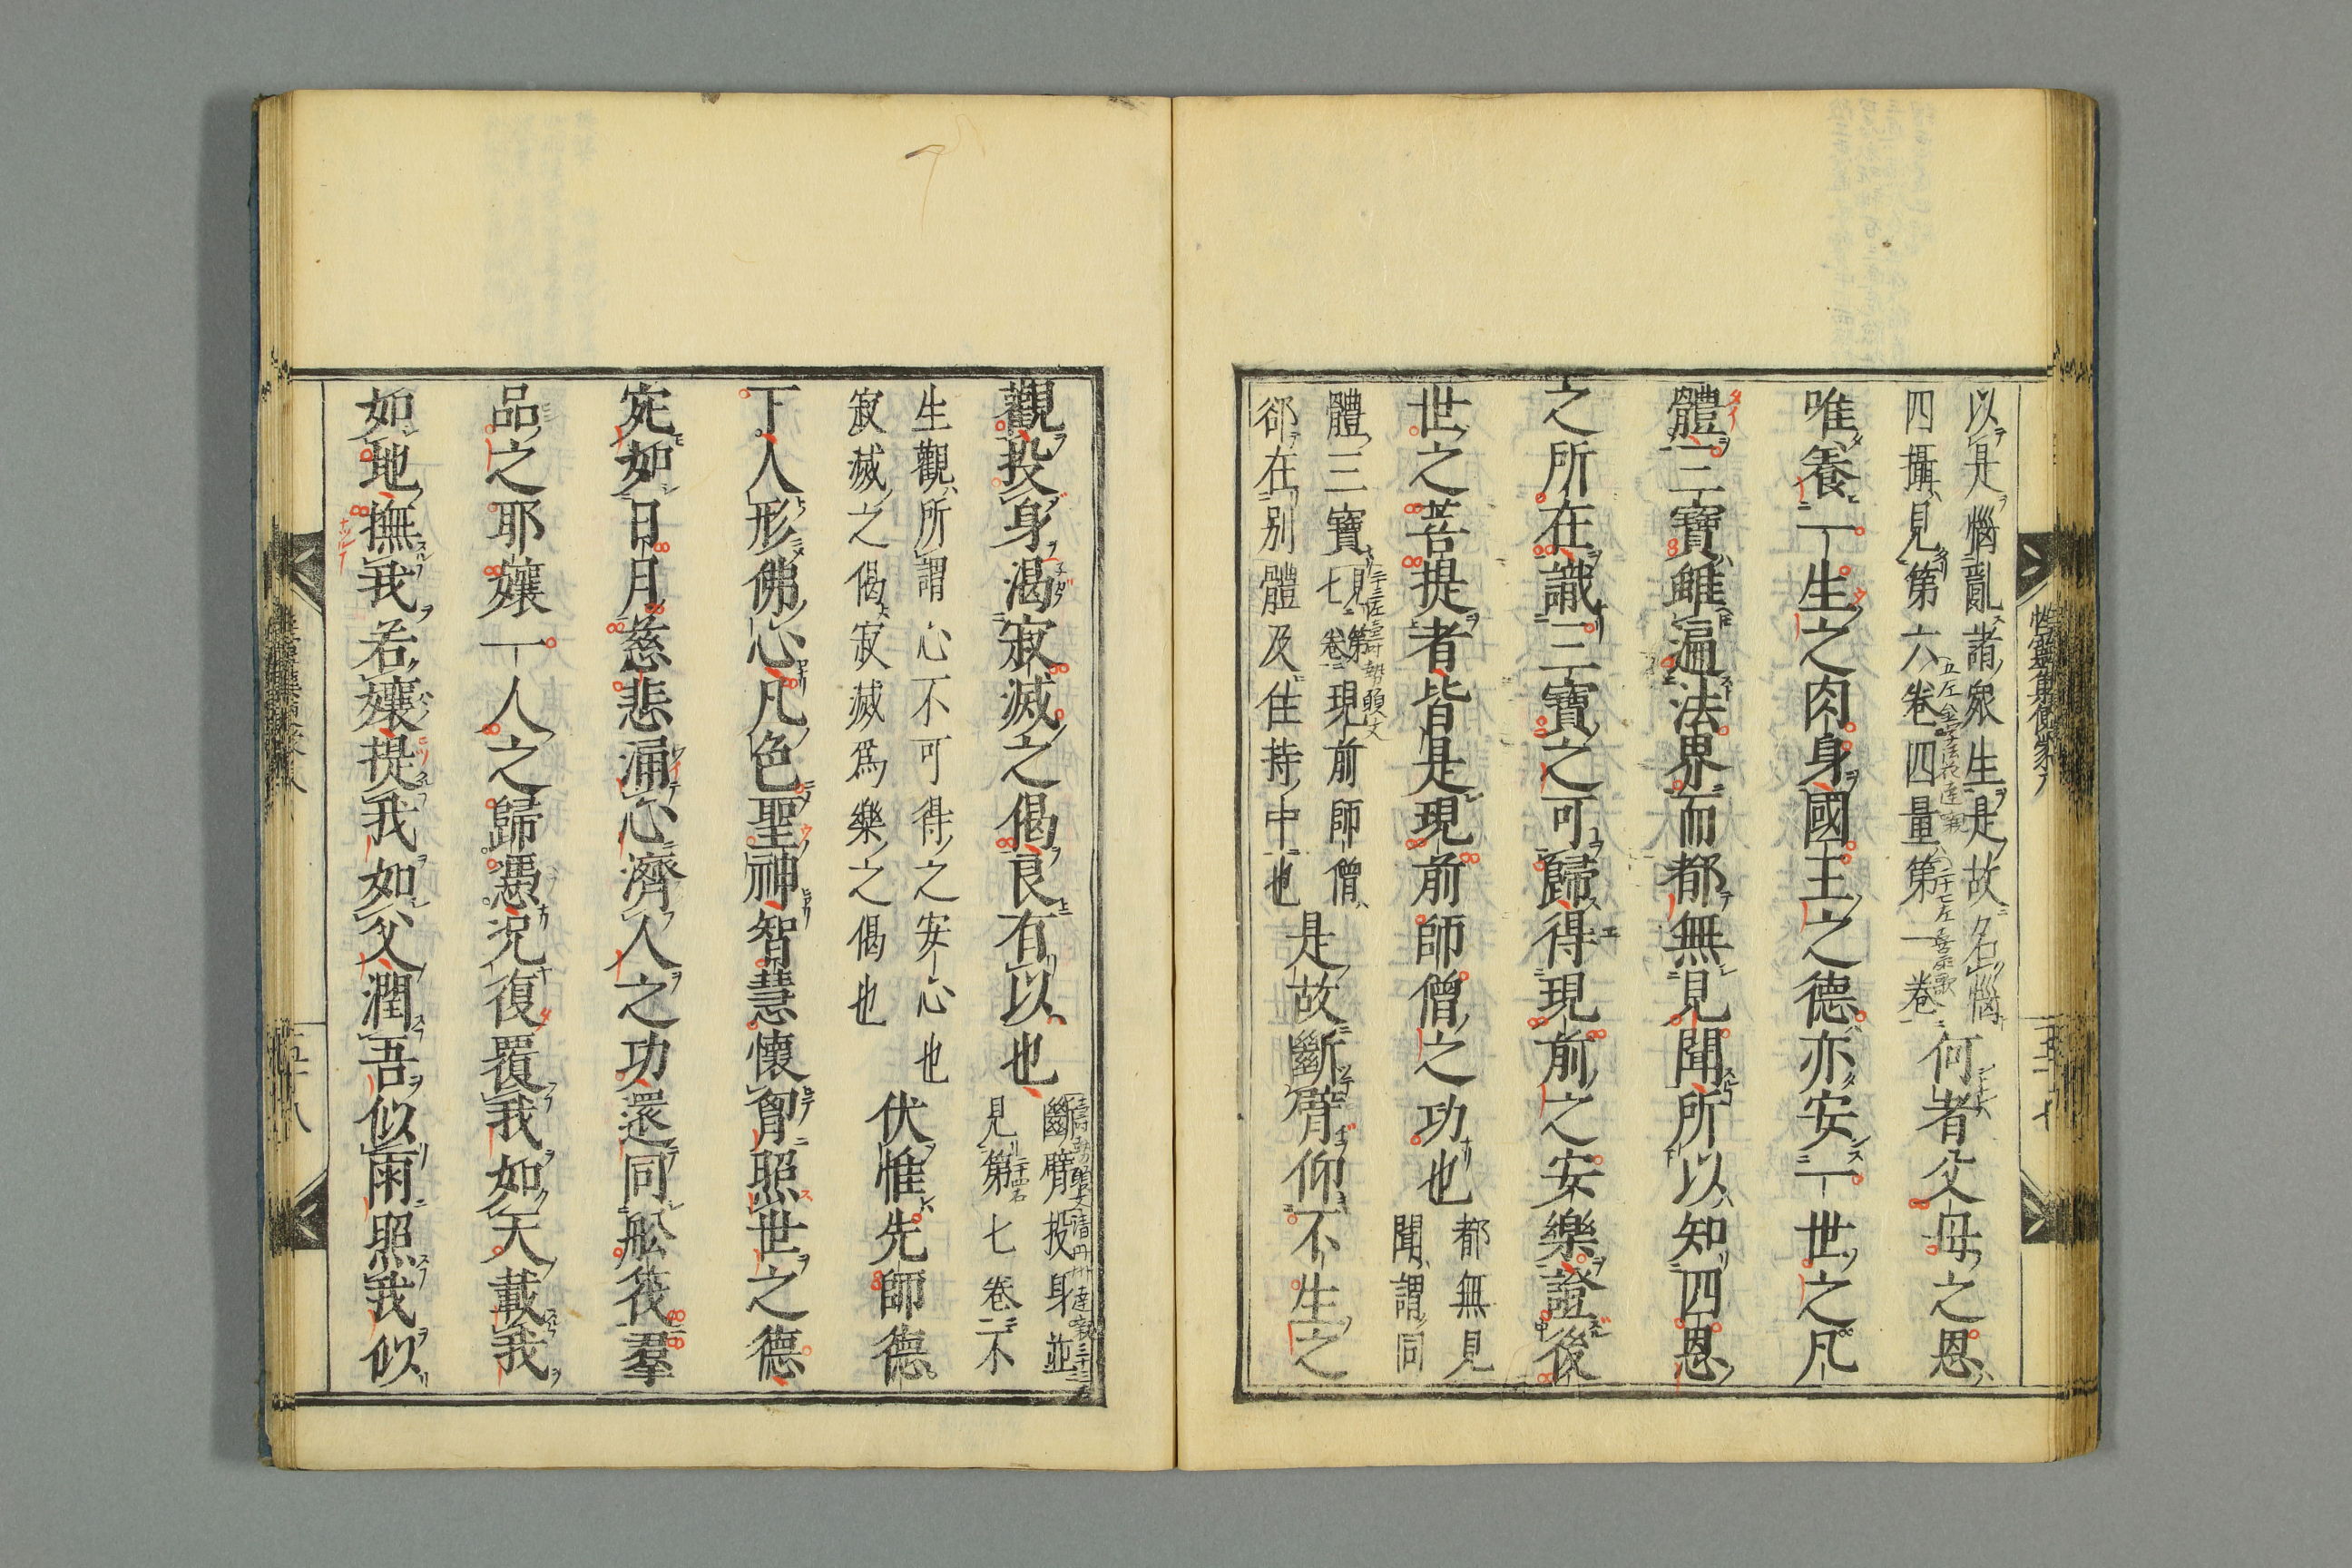 性靈集便蒙
以是惱亂諸衆生是故名惱
四攝見第六卷四量第一卷
何者父母之恩
唯養一生之肉身國王之德亦安一世之凡
體三寶雖遍法界而都無見聞所以知四恩
之所在識三寶之可歸得現前之安樂證後
世之菩提者皆是現前師僧之功也
都無見
聞謂同
體三寶見第七卷現前師僧
郤在別體及住持中也
是故斷臂仰不生之
觀投身渴寂滅之偈良有以也
斷臂投身並
見第七卷不
生觀所謂心不可得之安心也
寂滅之偈寂滅爲樂之偈也
伏惟先師德
下人形佛心凡色聖神智慧懷胷照世之德
宛如日月慈悲滿心濟人之功還同舩筏羣
品之耶孃一人之歸憑況復覆我如天載我
如地撫我若孃提我如父潤吾似雨照我似
五十八